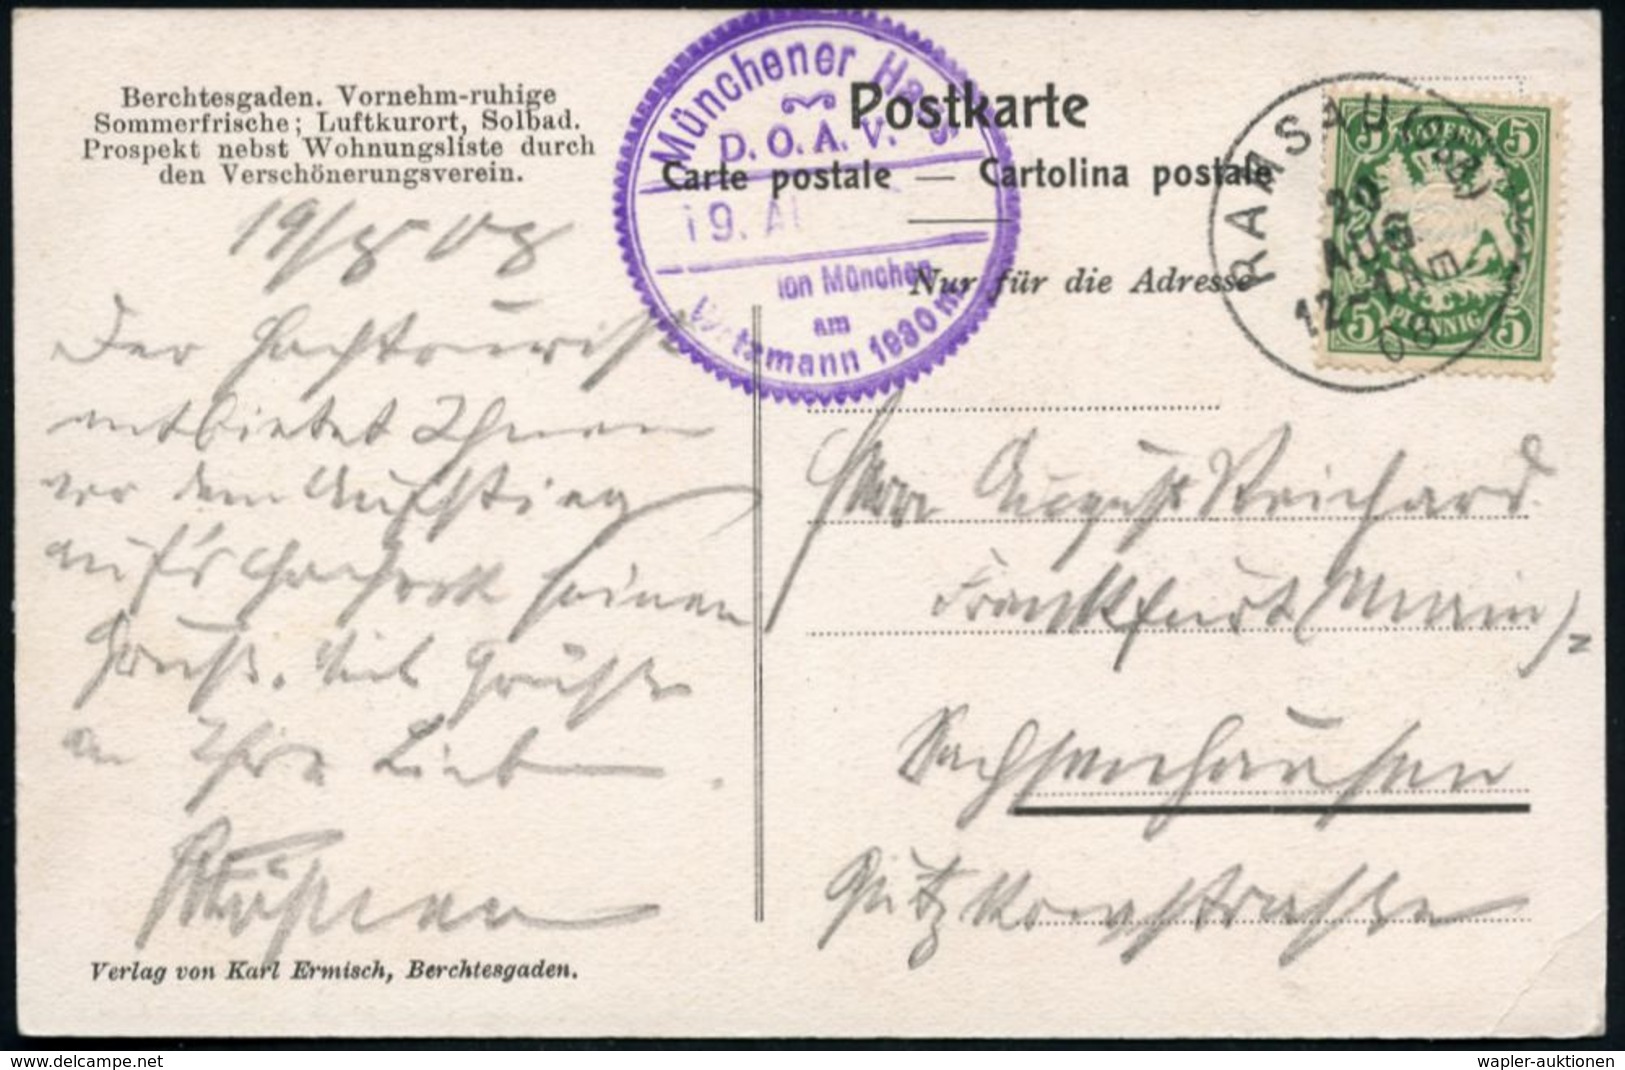 Berchtesgaden. Vornehm-ruhige
Sommerfrische; Luftkurort, Solbad.
Prospekt nebst Wohnungsliste durch
den Verschönerungsverein.
Münchener Haus
D.O.A.V.
19. A
ion München
am
Watzmann 1930 m
Postkarte
Carte postale — Cartolina postale
Nur für die Adresse
RAMSAU (Obb.)
20
AUG.
12-1 Nm.
08
BAYERN
5 5
5 PFENNIG 5
19/8 08
Der Hochtourist
entbietet Ihnen
vor dem Aufstieg
auf's Hocheck seinen
Gruß. Mit Grüßen
an Ihre Lieben
Herrn August Reichard
Frankfurt (Main)
Sachsenhausen
Verlag von Karl Ermisch, Berchtesgaden.
delcampe.net
wapler-auktionen